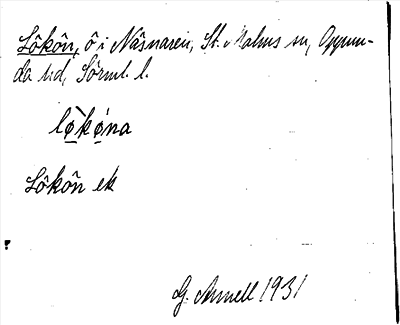 Lökön, ö i Näsnaren, St. Malms sn, Oppun-
da hd, Sörml. l.
lø̀kǿna
Lökön ek
G. Annell 1931